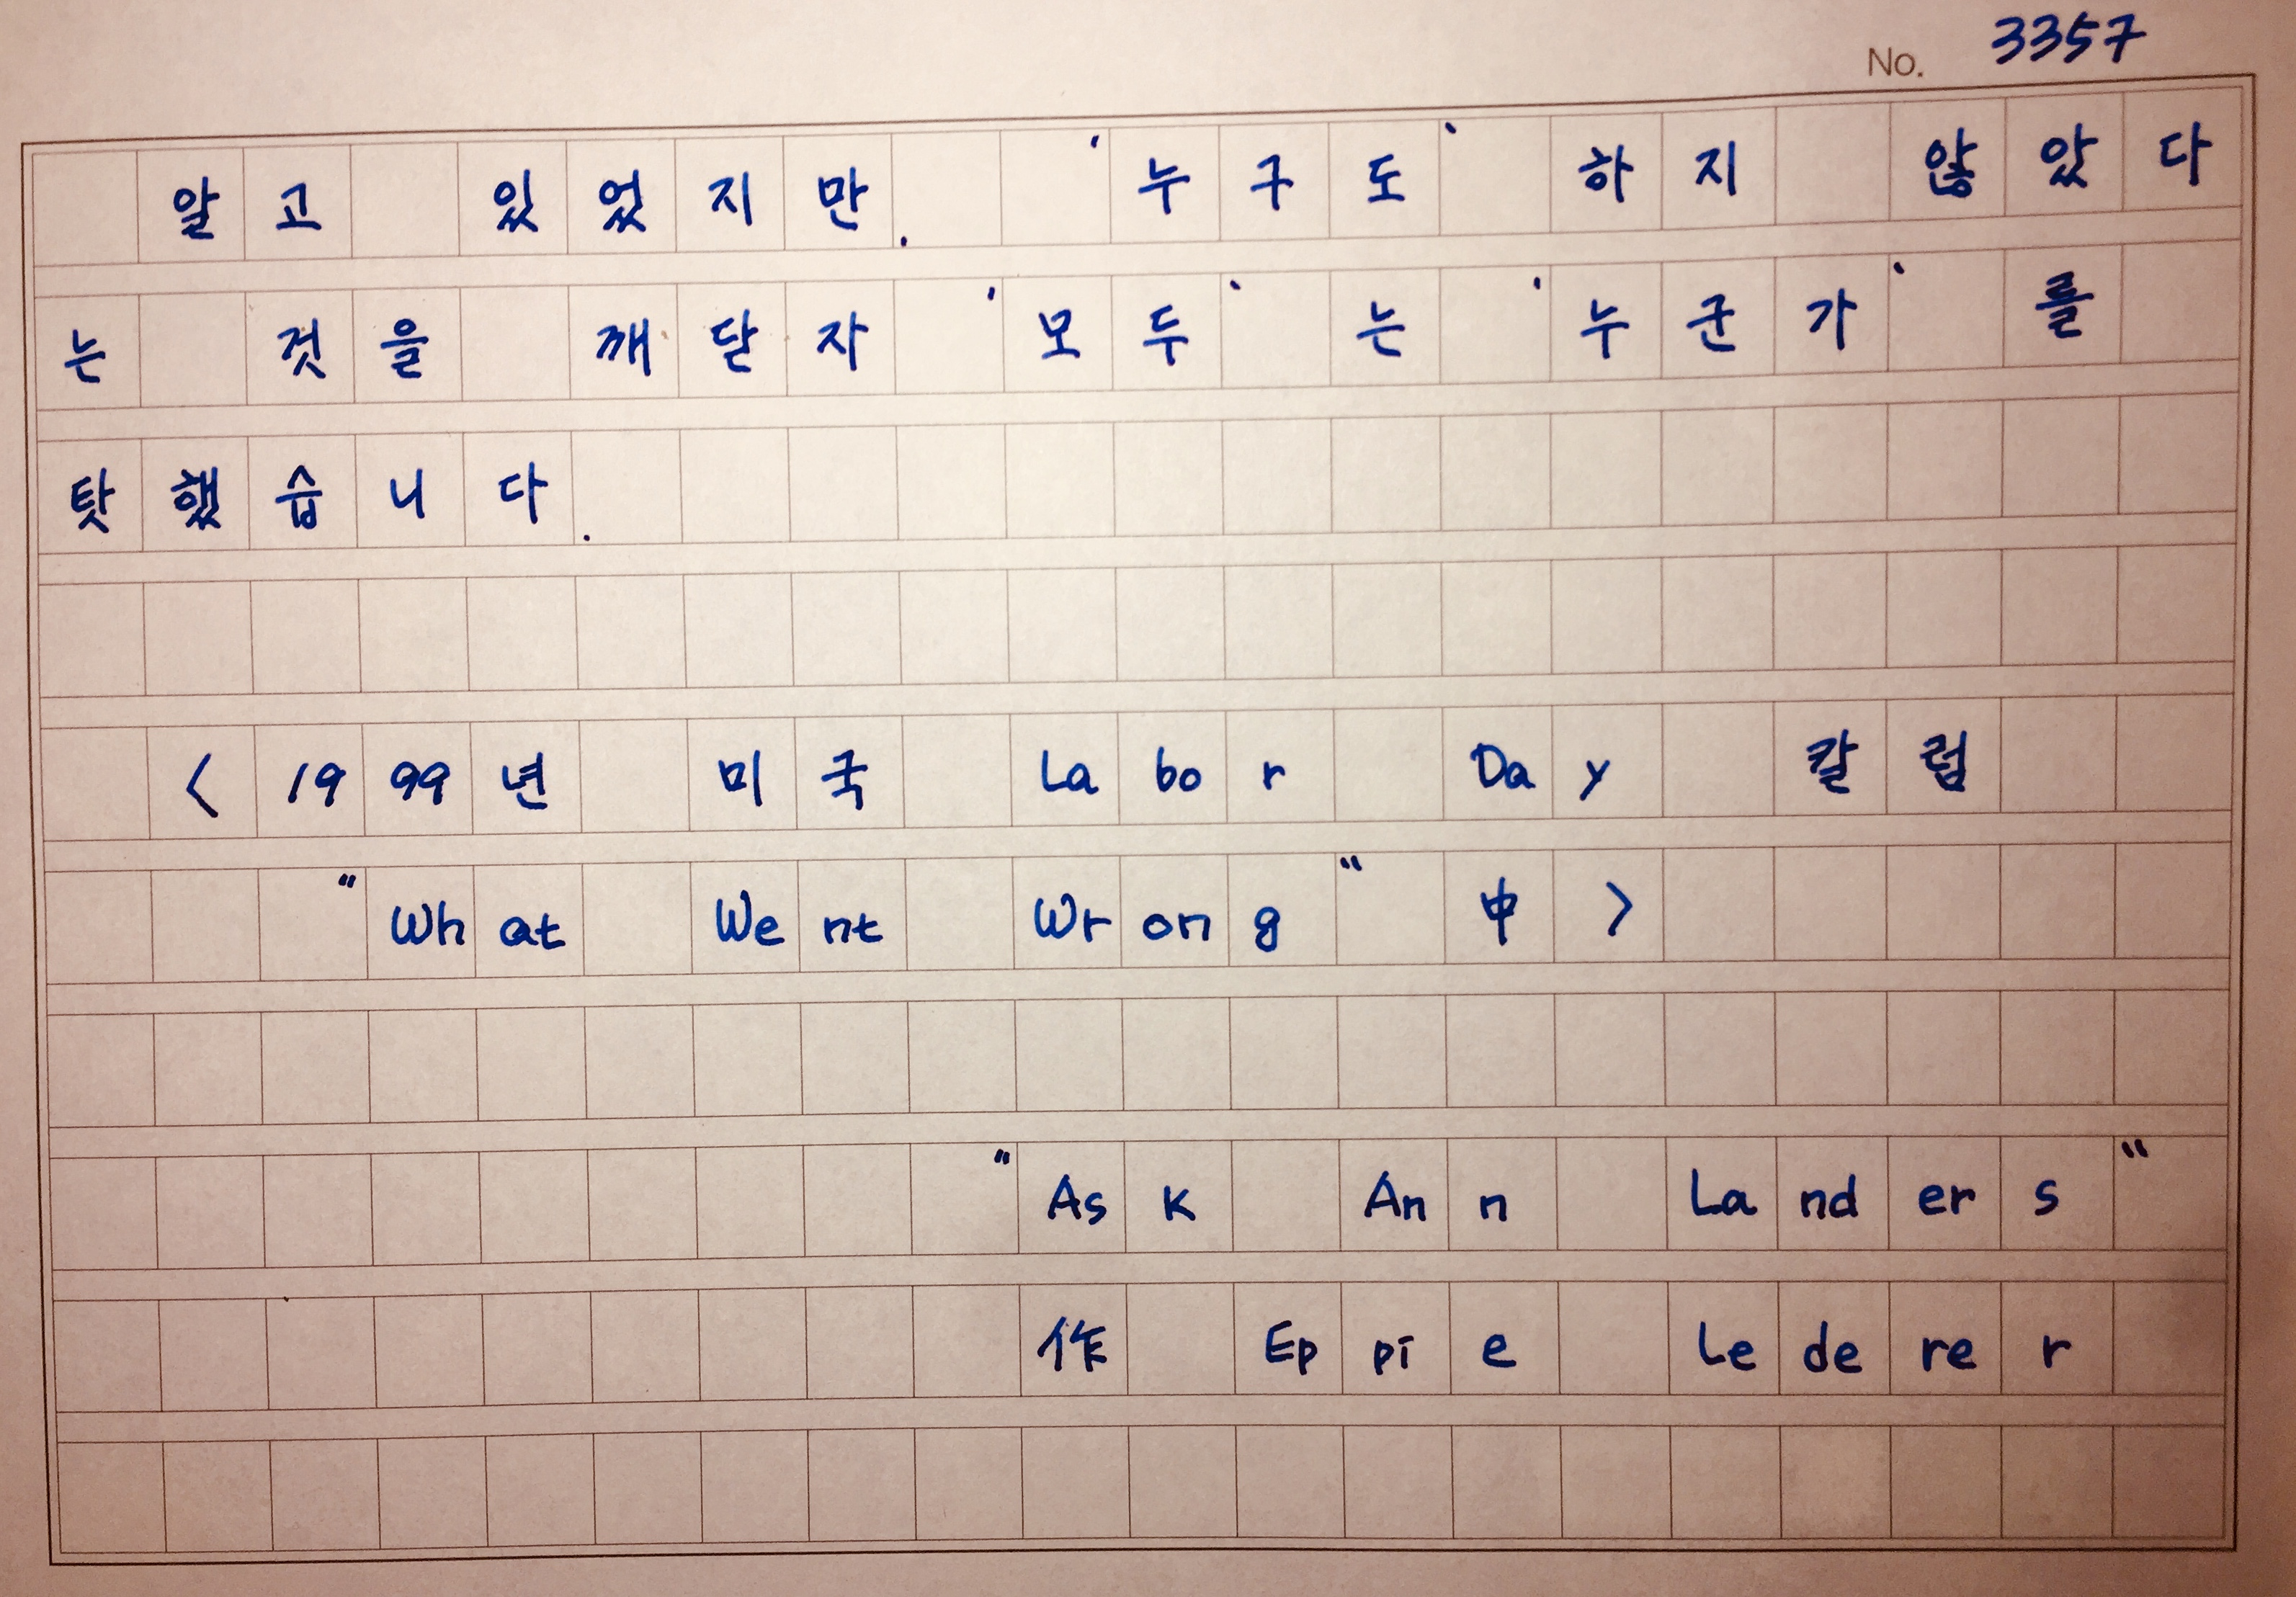 No. 3357
알고 있었지만. '누구도' 하지 않았다
는 것을 깨닫자 '모두'는 '누군가'를
탓했습니다.
<1999년 미국 Labor Day 칼럼
"What Went Wrong" 中>
"Ask Ann Landers"
作 Eppie Lederer